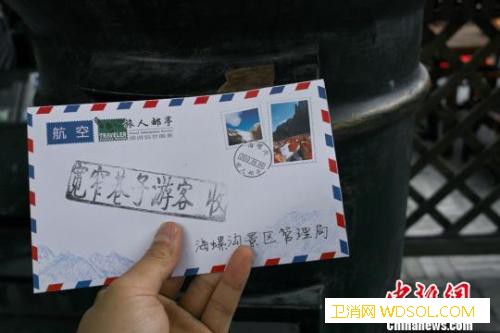 航空
TRAVELER
旅人邮亭
宽窄巷子游客 收
海螺沟景区管理局
中新网
Chinanews.com
卫消网WDSOL.COM